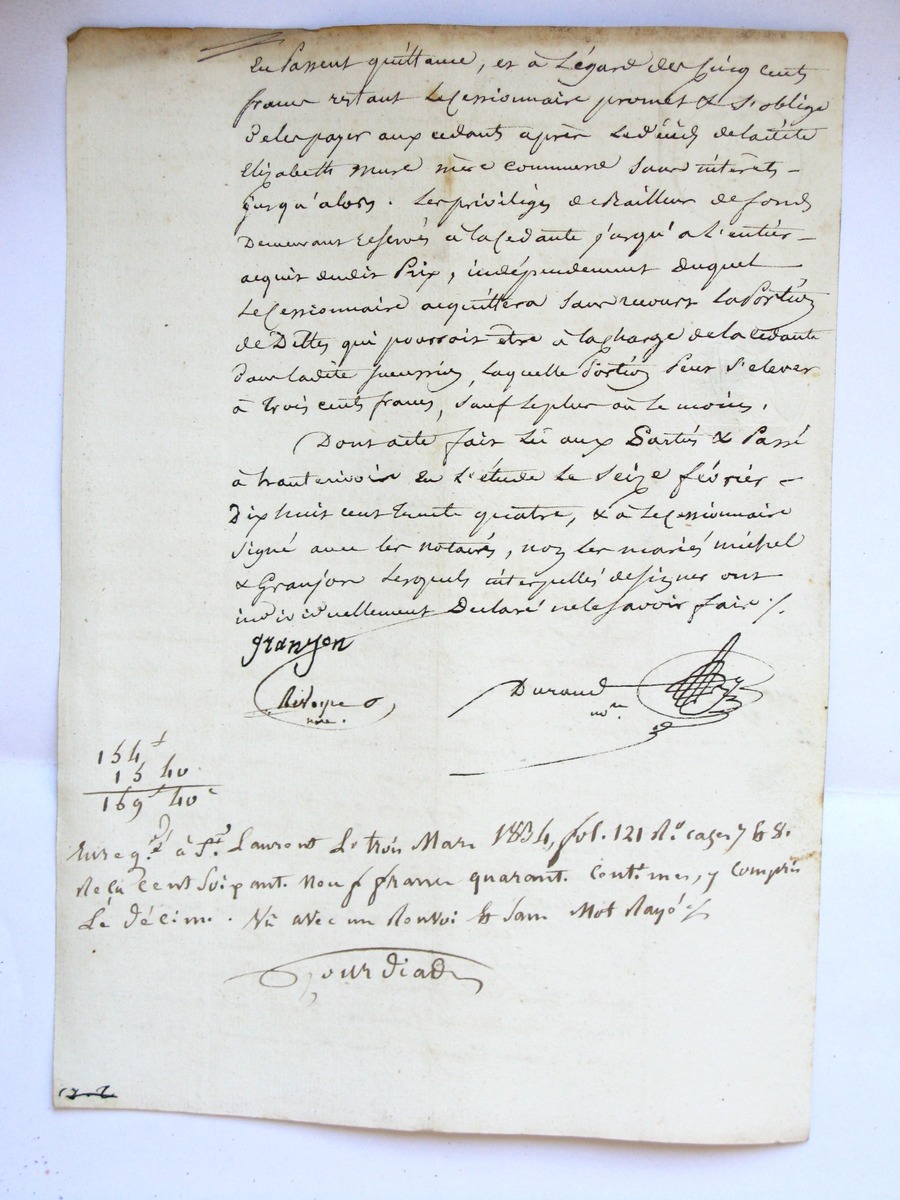 En Passent quittance, et à L'égard des Cinq cents
francs restant Le Cessionnaire promet & S'oblige
De les payer aux cedants après Le décès de ladite
Elizabeth mure mère commune Sans intérets -
jusqu'alors. Les priviléges de Bailleur de fonds
Demeurant Reservés à la Cedante jusqu'a L'entier -
acquit dudit Prix, indépendement duquel
Le Cessionnaire acquittera Sans recours La Portion
de Dettes qui pourroit être à la charge de la Cedante
Dans ladite Succession, Laquelle Portion Peut S'elever
à trois cents francs, Sauf Le plus ou Le moins.
Dont acte fait Lû aux Parties & Passé
à hauterivoire En L'étude Le Seize février -
Dix huit cent trente quatre, & à Le Cessionnaire
Signé avec les notaires, non les mariés michel
& Granjon Lesquels interpellés de signer ont
individuellement Déclaré ne le Savoir faire ./.
granjon
Durand
nre.
154 f
15 40
169 f 40 c
Enregé à St. Laurent Le trois Mars 1834, fol. 121 Ro. cases 7 & 8.
Reçu Cent Soixant. Neuf francs quarant. Centimes, y compris
Le décime. Vu avec un Renvoi & Sans Mot Rayé